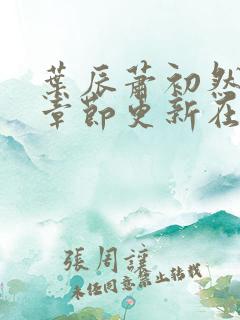 葉辰蕭初然
章節更新在
張周謹
未任同意禁止轉載